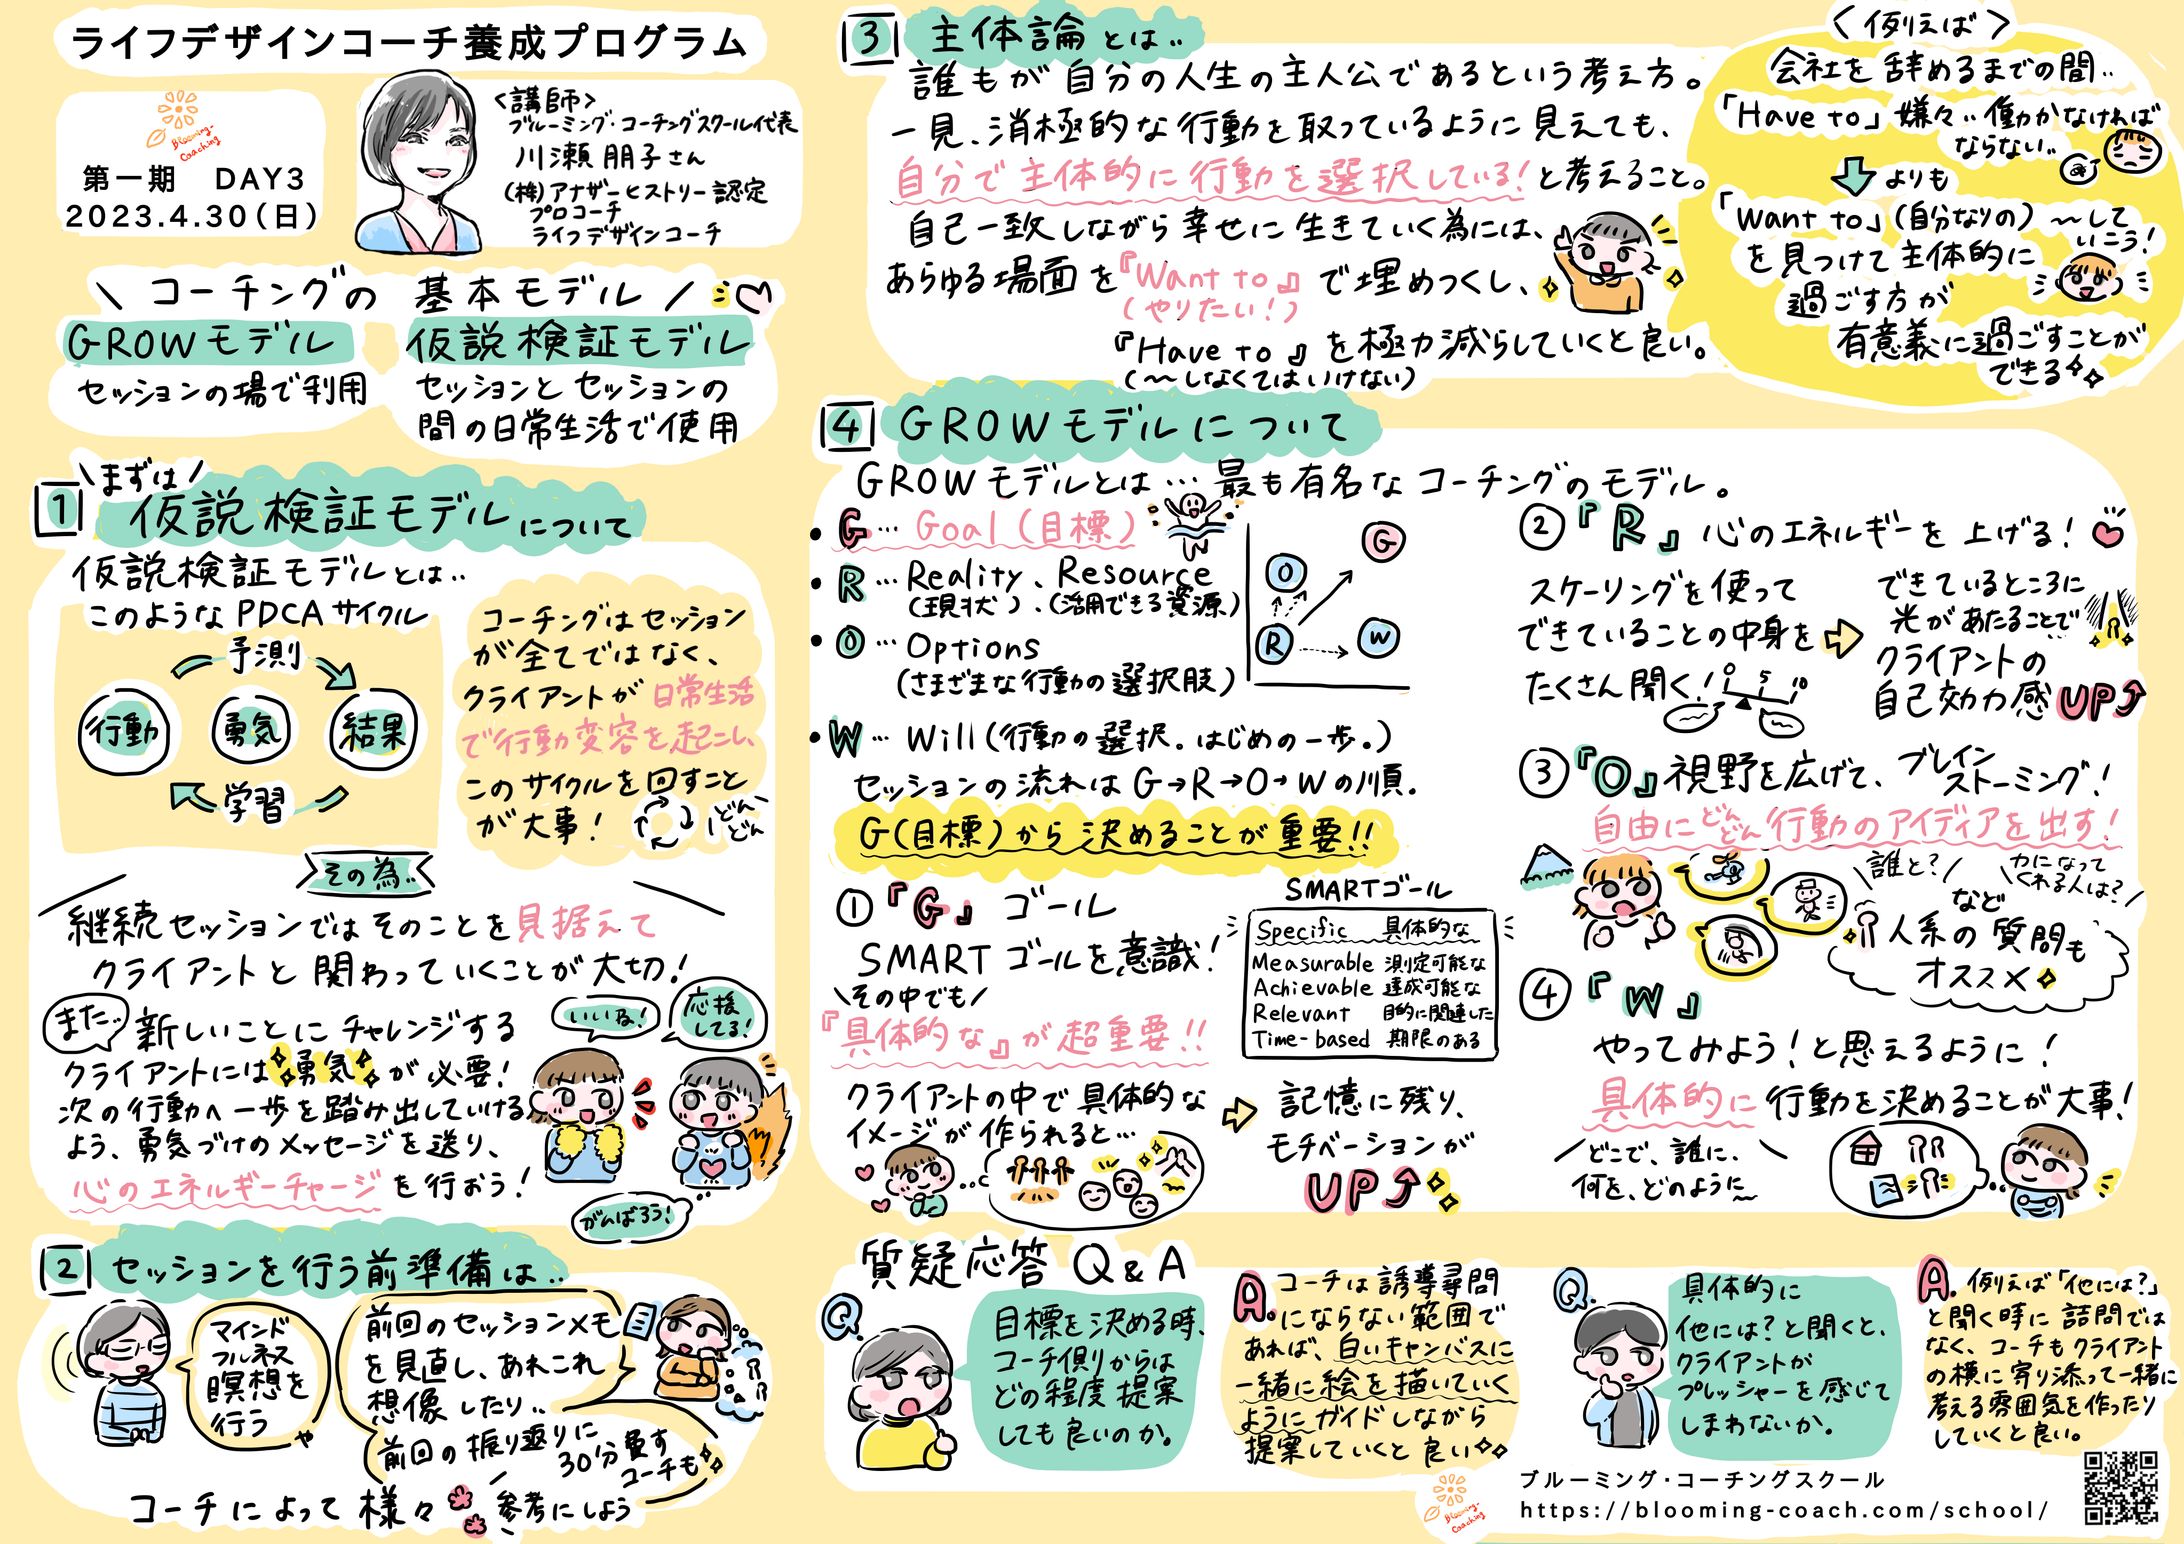 ライフデザインコーチ養成プログラム
Blooming-
Coaching
第一期 DAY3
2023.4.30(日)
<講師>
ブルーミング・コーチングスクール代表
川瀬 朋子さん
(株)アナザーヒストリー認定
プロコーチ
ライフデザインコーチ
\ コーチングの 基本モデル /
GROWモデル
セッションの場で利用
仮説検証モデル
セッションとセッションの
間の日常生活で使用
1
\まずは/
仮説検証モデルについて
仮説検証モデルとは..
このようなPDCAサイクル
予測
行動
勇気
結果
学習
コーチングはセッション
が全てではなく、
クライアントが日常生活
で行動変容を起こし、
このサイクルを回すこと
が大事!
どん
どん
その為..
継続セッションではそのことを見据えて
クライアントと関わっていくことが大切!
また..
新しいことにチャレンジする
クライアントには勇気が必要!
次の行動へ一歩を踏み出していける
よう、勇気づけのメッセージを送り、
心のエネルギーチャージを行おう!
いいね!
応援
してる!
がんばろう!
2 セッションを行う前準備は..
マインド
フルネス
瞑想を
行う
や
前回のセッションメモ
を見直し、あれこれ
想像したり..
前回の振り返りに
30分費す
コーチも
コーチによって様々
参考にしよう
3 主体論とは..
誰もが自分の人生の主人公であるという考え方。
一見、消極的な行動を取っているように見えても、
自分で主体的に行動を選択している!と考えること。
自己一致しながら幸せに生きていく為には、
あらゆる場面を『Want to』で埋めつくし、
(やりたい!)
『Have to』を極力減らしていくと良い。
(〜しなくてはいけない)
<例えば>
会社を辞めるまでの間..
「Have to」嫌々..働かなければ
ならない..
よりも
「Want to」(自分なりの)〜して
いこう!
を見つけて主体的に
過ごす方が
有意義に過ごすことが
できる
4 GROWモデルについて
GROWモデルとは…最も有名なコーチングのモデル。
・G…Goal(目標)
・R…Reality、Resource
(現状)、(活用できる資源)
・O…Options
(さまざまな行動の選択肢)
・W…Will(行動の選択。はじめの一歩。)
O
G
R
W
セッションの流れはG→R→O→Wの順.
G(目標)から決めることが重要!!
①『G』ゴール
SMARTゴールを意識!
\その中でも/
『具体的な』が超重要!!
SMARTゴール
Specific 具体的な
Measurable 測定可能な
Achievable 達成可能な
Relevant 目的に関連した
Time-based 期限のある
クライアントの中で具体的な
イメージが作られると…
記憶に残り、
モチベーションが
UP
②『R』心のエネルギーを上げる!
スケーリングを使って
できていることの中身を
たくさん聞く!
0 5 10
できているところに
光があたることで
クライアントの
自己効力感UP
③『O』視野を広げて、ブレイン
ストーミング!
自由にどんどん行動のアイディアを出す!
\誰と?/
力になって
くれる人は?
など
人系の質問も
オススメ
④『W』
やってみよう!と思えるように!
具体的に行動を決めることが大事!
どこで、誰に、
何を、どのように
質疑応答 Q&A
Q.
目標を決める時、
コーチ側からは
どの程度提案
しても良いのか。
A.
コーチは誘導尋問
にならない範囲で
あれば、白いキャンバスに
一緒に絵を描いていく
ようにガイドしながら
提案していくと良い
Q.
具体的に
他には?と聞くと、
クライアントが
プレッシャーを感じて
しまわないか。
A. 例えば「他には?」
と聞く時に詰問では
なく、コーチもクライアント
の横に寄り添って一緒に
考える雰囲気を作ったり
していくと良い。
Blooming-
Coaching
ブルーミング・コーチングスクール
https://blooming-coach.com/school/